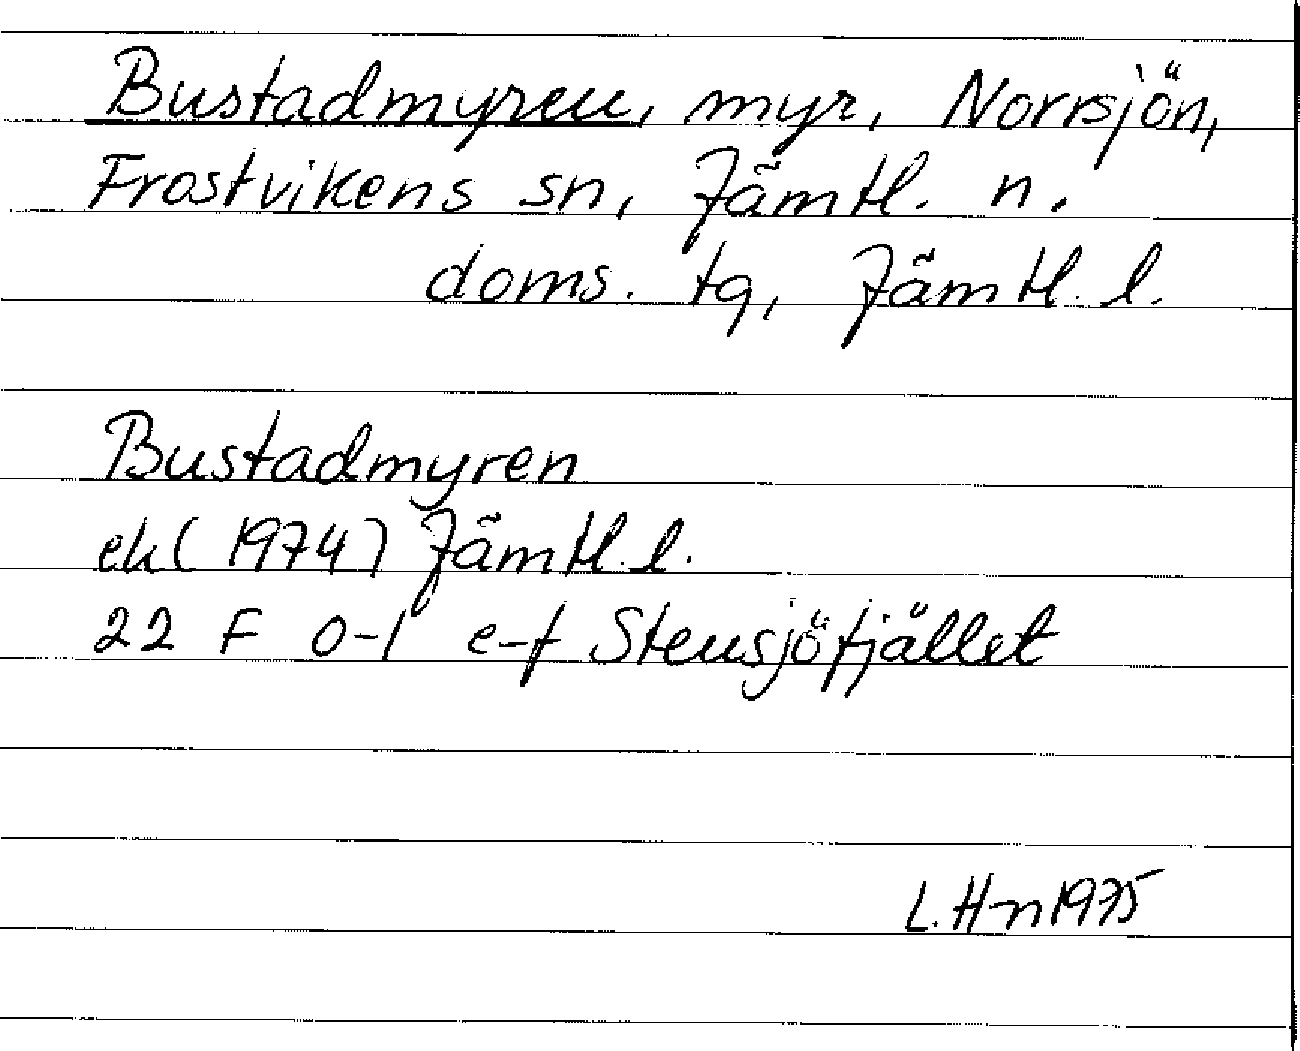 Bustadmyren, myr, Norrsjön,
Frostvikens sn, Jämtl. n.
doms. tg, Jämtl. l.
Bustadmyren
ek (1974) Jämtl. l.
22 F 0-1 e-f Stensjöfjället
L. H-n 1975